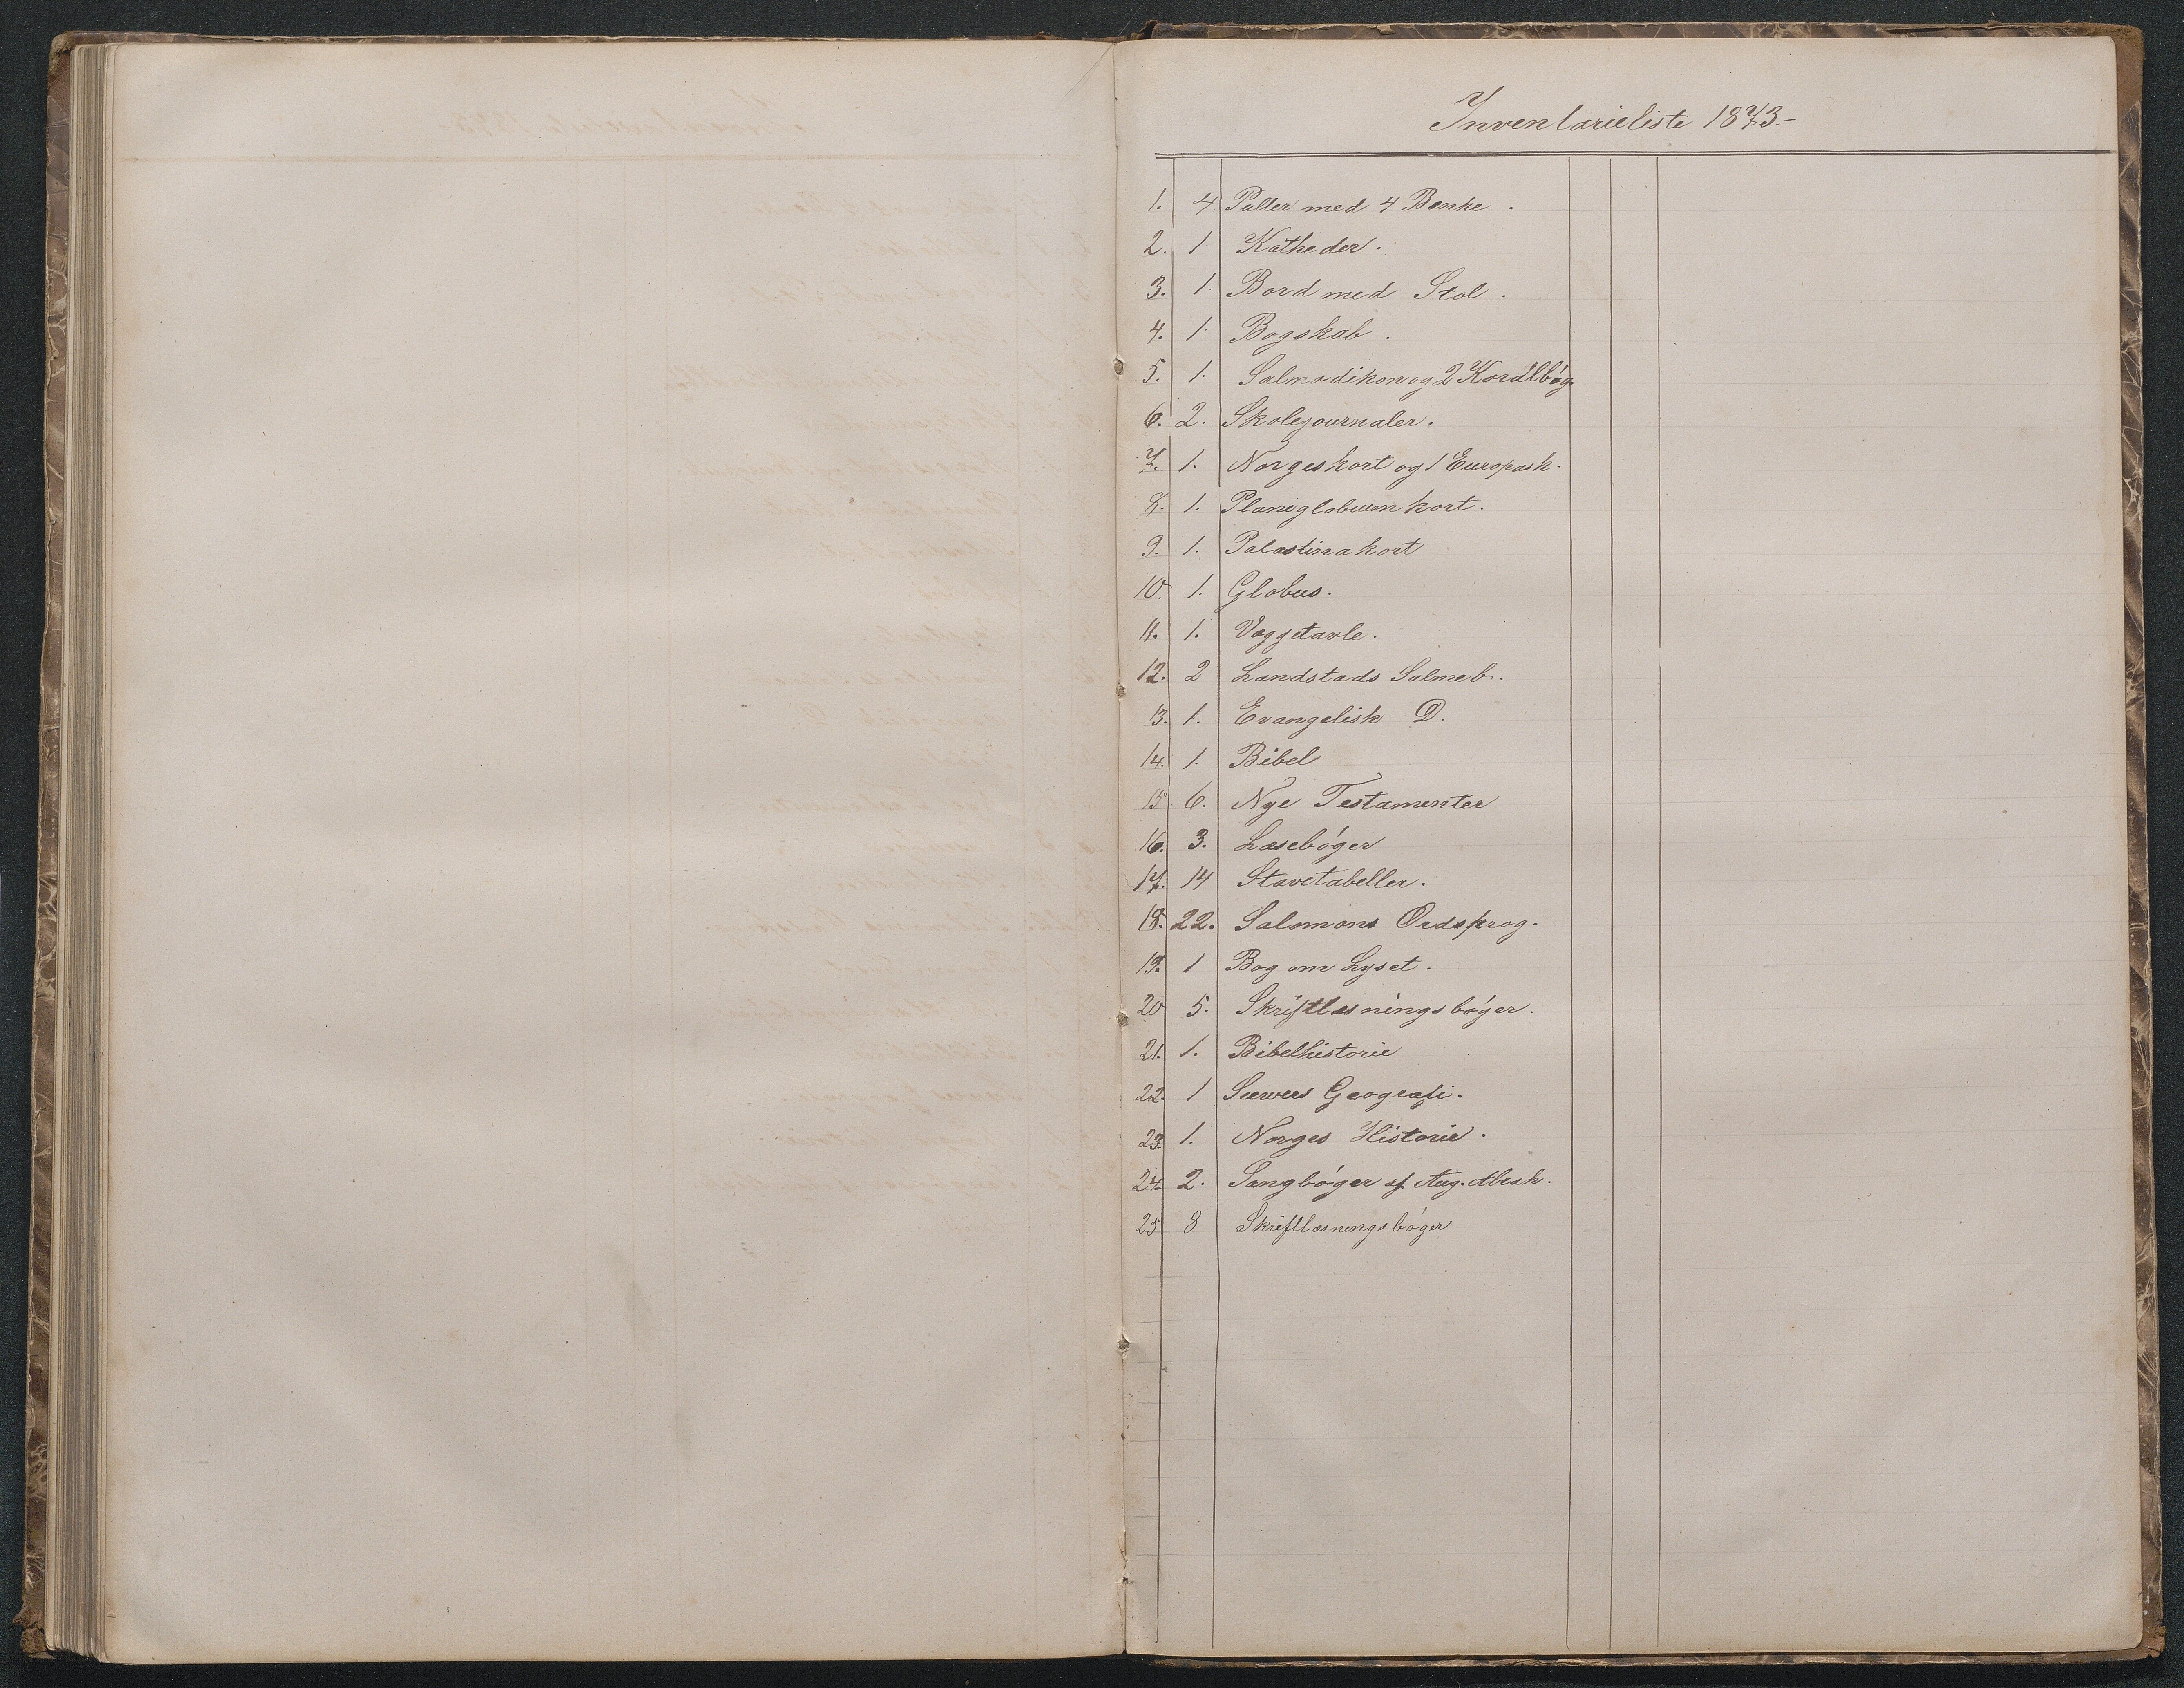 Inventarieliste 1873.-
1. 4. Pulter med 4 Bænke.
2. 1 Katheder.
3. 1. Bord med Stol.
4. 1. Bogskab.
5. 1. Salmodikon og 2 Koralbøg.
6. 2. Skolejournaler.
7. 1. Norgeskort og 1 Europask.
8. 1. Planiglobiumkort.
9. 1. Palæstinakort
10. 1. Globus.
11. 1. Vægtavle.
12. 2 Landstads Salmeb.
13. 1. Evangelisk D.
14. 1. Bibel
15 6. Nye Testamenter
16. 3. Læsebøger
17. 14 Stavetabeller.
18. 22. Salomons Ordsprog.
19. 1 Bog om Lyset.
20 5. Skriftlæsningsbøger.
21. 1. Bibelhistorie
22. 1 Geografi.
23. 1. Norges Historie.
24. 2. Sangbøger af Aug.
25 8 Skriftlæsningsbøger